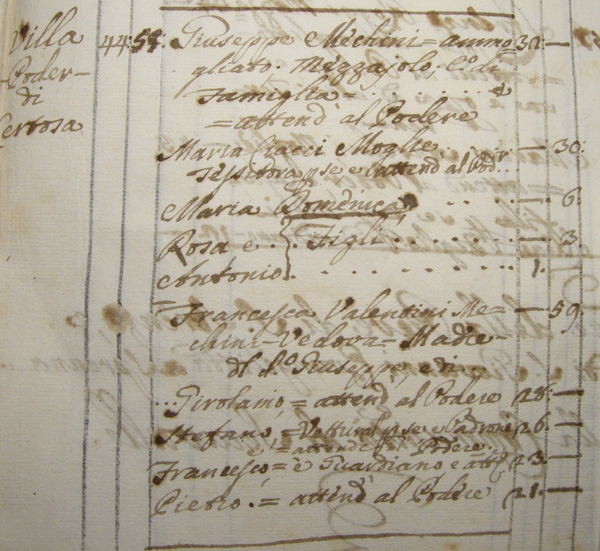 Villa
Poder-
di
Certosa
44:58: Giuseppe Mechini = ammo= 32: —
gliato. Mezzajolo. C.o di
Famiglia = . . . . . è
= attend' al Podere
Maria Ciacci Moglie . . . — 30:
Tessitora p se e attend' al Pod.r
Maria Domenica . . . — 6:
Rosa e . . Figli . . . . . — 3.
Antonio . . . . . . — 1.
Francesca Valentini Me= — 59
chini - Vedova = Madre -
dl d.o Giuseppe, e di . . .
Girolamo = attend' al Podere 28: —
Stefano = p se e Padroni 26: —
e = attend' al Podere.
Francesco = è Guardiano e 23: —
Pietro . = attend' al Podere 21: —